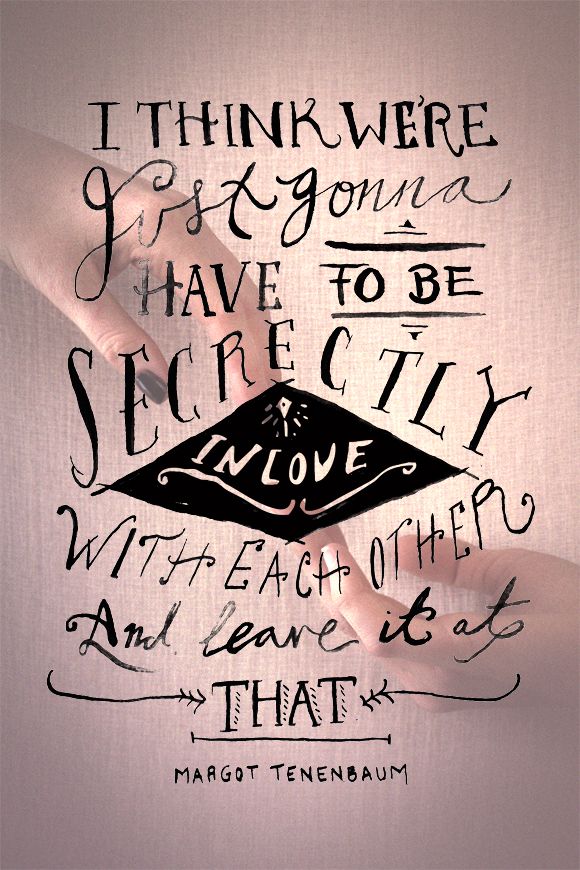 I THINK WE'RE
Just gonna
HAVE TO BE
SECRECTLY
IN LOVE
WITH EACH OTHER
And leave it at
THAT
MARGOT TENENBAUM